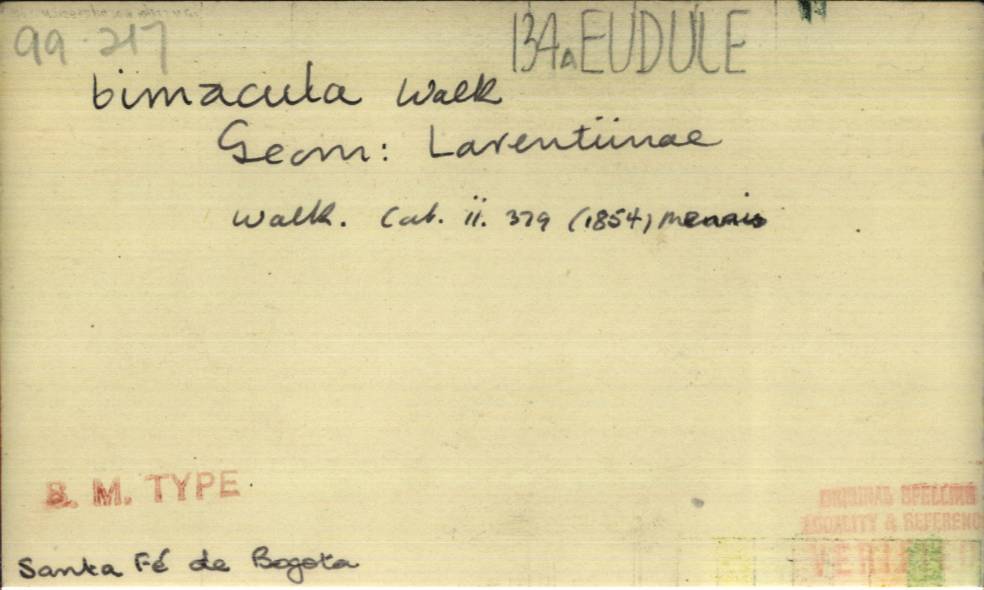 99·217
134A EUDULE
bimacula Walk
Geom: Larentiinae
Walk. Cat. ii. 379 (1854)
B. M. TYPE
ORIGINAL SPELLING
LOCALITY & REFERENC
VERIFIED
Santa Fé de Bogota